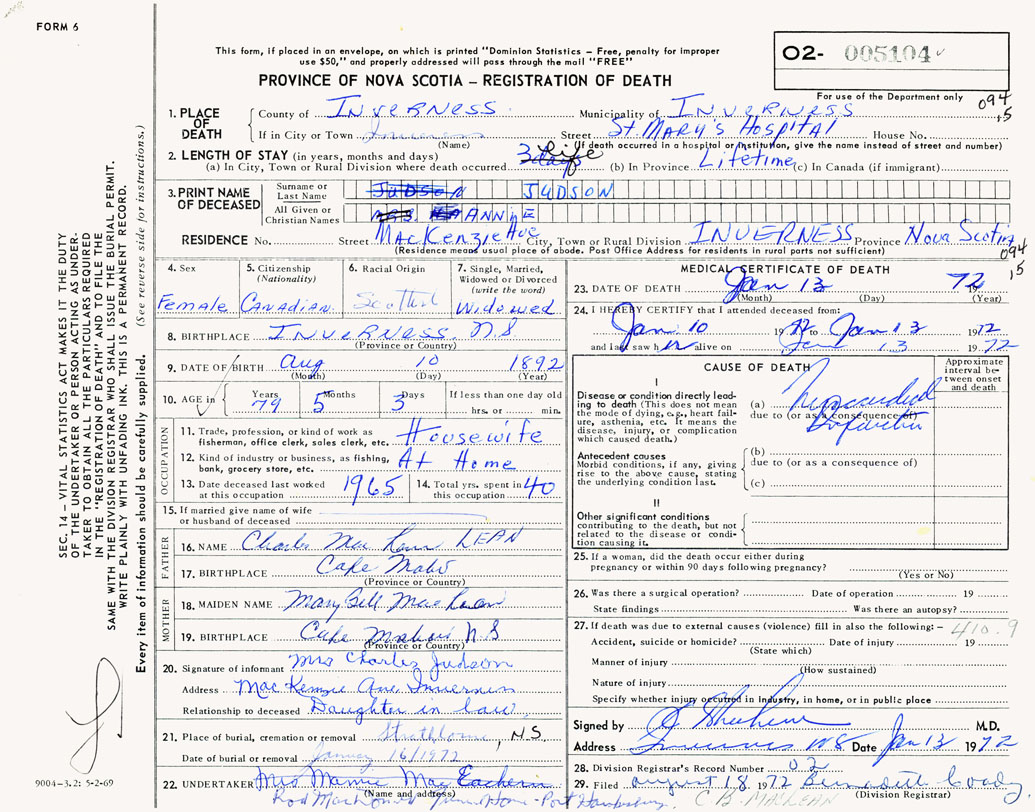 FORM 6
This form, if placed in an envelope, on which is printed "Dominion Statistics – Free, penalty for improper
use $50," and properly addressed will pass through the mail "FREE"
PROVINCE OF NOVA SCOTIA – REGISTRATION OF DEATH
O2- 005104
For use of the Department only
094
15
1. PLACE OF DEATH
County of INVERNESS Municipality of INVERNESS
If in City or Town Inverness Street St MARY'S HOSPITAL House No.
(Name) (If death occurred in a hospital or institution, give the name instead of street and number)
2. LENGTH OF STAY (in years, months and days)
(a) In City, Town or Rural Division where death occurred 3 days Life (b) In Province Lifetime (c) In Canada (if immigrant)
3. PRINT NAME OF DECEASED
Surname or Last Name JUDSON JUDSON
All Given or Christian Names MRS ANNIE
RESIDENCE No. Street MacKenzie Ave City, Town or Rural Division INVERNESS Province Nova Scotia
(Residence means usual place of abode. Post Office Address for residents in rural parts not sufficient)
094
15
4. Sex Female
5. Citizenship (Nationality) Canadian
6. Racial Origin Scottish
7. Single, Married, Widowed or Divorced (write the word) Widowed
8. BIRTHPLACE INVERNESS, N.S
(Province or Country)
9. DATE OF BIRTH Aug 10 1892
(Month) (Day) (Year)
10. AGE IN Years 79 Months 5 Days 3 If less than one day old hrs. or min.
OCCUPATION
11. Trade, profession, or kind of work as fisherman, office clerk, sales clerk, etc. Housewife
12. Kind of industry or business, as fishing, bank, grocery store, etc. At Home
13. Date deceased last worked at this occupation 1965
14. Total yrs. spent in this occupation 40
15. If married give name of wife or husband of deceased
FATHER
16. NAME Charles Mac LEAN
17. BIRTHPLACE Cape Mabou
(Province or Country)
MOTHER
18. MAIDEN NAME Mary Bell Mac Lean
19. BIRTHPLACE Cape Mabou N.S
(Province or Country)
20. Signature of informant Mrs Charles Judson
Address MacKenzie Ave, Inverness
Relationship to deceased Daughter in law
21. Place of burial, cremation or removal Strathlorne, N.S.
Date of burial or removal January 16/1972
22. UNDERTAKER Mrs Mamie MacEachern
(Name and address)
Port Hawkesbury
MEDICAL CERTIFICATE OF DEATH
23. DATE OF DEATH Jan 13 1972
(Month) (Day) (Year)
24. I HEREBY CERTIFY that I attended deceased from:
Jan 10 1972 to Jan 13 1972
and last saw her alive on Jan 13 1972
CAUSE OF DEATH
Approximate interval between onset and death
I
Disease or condition directly leading to death (This does not mean the mode of dying, e.g., heart failure, asthenia, etc. It means the disease, injury, or complication which caused death.)
(a) Myocardial
due to (or as a consequence of)
Infarction
Antecedent causes
Morbid conditions, if any, giving rise to the above cause, stating the underlying condition last.
(b)
due to (or as a consequence of)
(c)
II
Other significant conditions
contributing to the death, but not related to the disease or condition causing it.
25. If a woman, did the death occur either during
pregnancy or within 90 days following pregnancy?
(Yes or No)
26. Was there a surgical operation? Date of operation 19
State findings Was there an autopsy?
27. If death was due to external causes (violence) fill in also the following: – 410.9
Accident, suicide or homicide? Date of injury 19
(State which)
Manner of injury
(How sustained)
Nature of injury
Specify whether injury occurred in industry, in home, or in public place
Signed by M.D.
Address Inverness NS Date Jan 13 1972
28. Division Registrar's Record Number 02
29. Filed August 18 1972 Bernadette Coady
C. B. MACLEAN (Division Registrar)
SEC. 14 – VITAL STATISTICS ACT MAKES IT THE DUTY
OF THE UNDERTAKER OR PERSON ACTING AS UNDER-
TAKER TO OBTAIN ALL THE PARTICULARS REQUIRED
IN THE "REGISTRATION OF DEATH" AND TO FILE THE
SAME WITH THE DIVISION REGISTRAR WHO SHALL ISSUE THE BURIAL PERMIT.
WRITE PLAINLY WITH UNFADING INK. THIS IS A PERMANENT RECORD.
Every item of information should be carefully supplied. (See reverse side for instructions.)
9004-3.2: 5-2-69